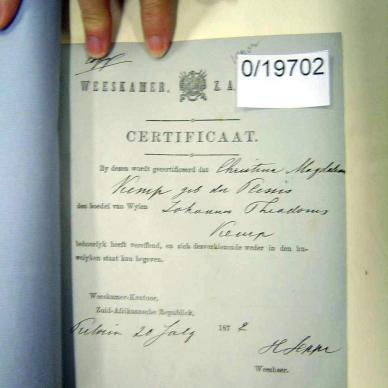 Copy
WEESKAMER, Z. A.
0/19702
CERTIFICAAT.
By dezen wordt gecertificeerd dat Christina Magdalena
Kemp geb du Plesis
den boedel van Wylen Johannes Theodorus
Kemp
behoorlyk heeft vereffend, en zich desverkiezende weder in den hu-
welyken staat kan begeven.
Weeskamer-Kantoor,
Zuid-Afrikaansche Republiek,
20 July 187
Weesheer.